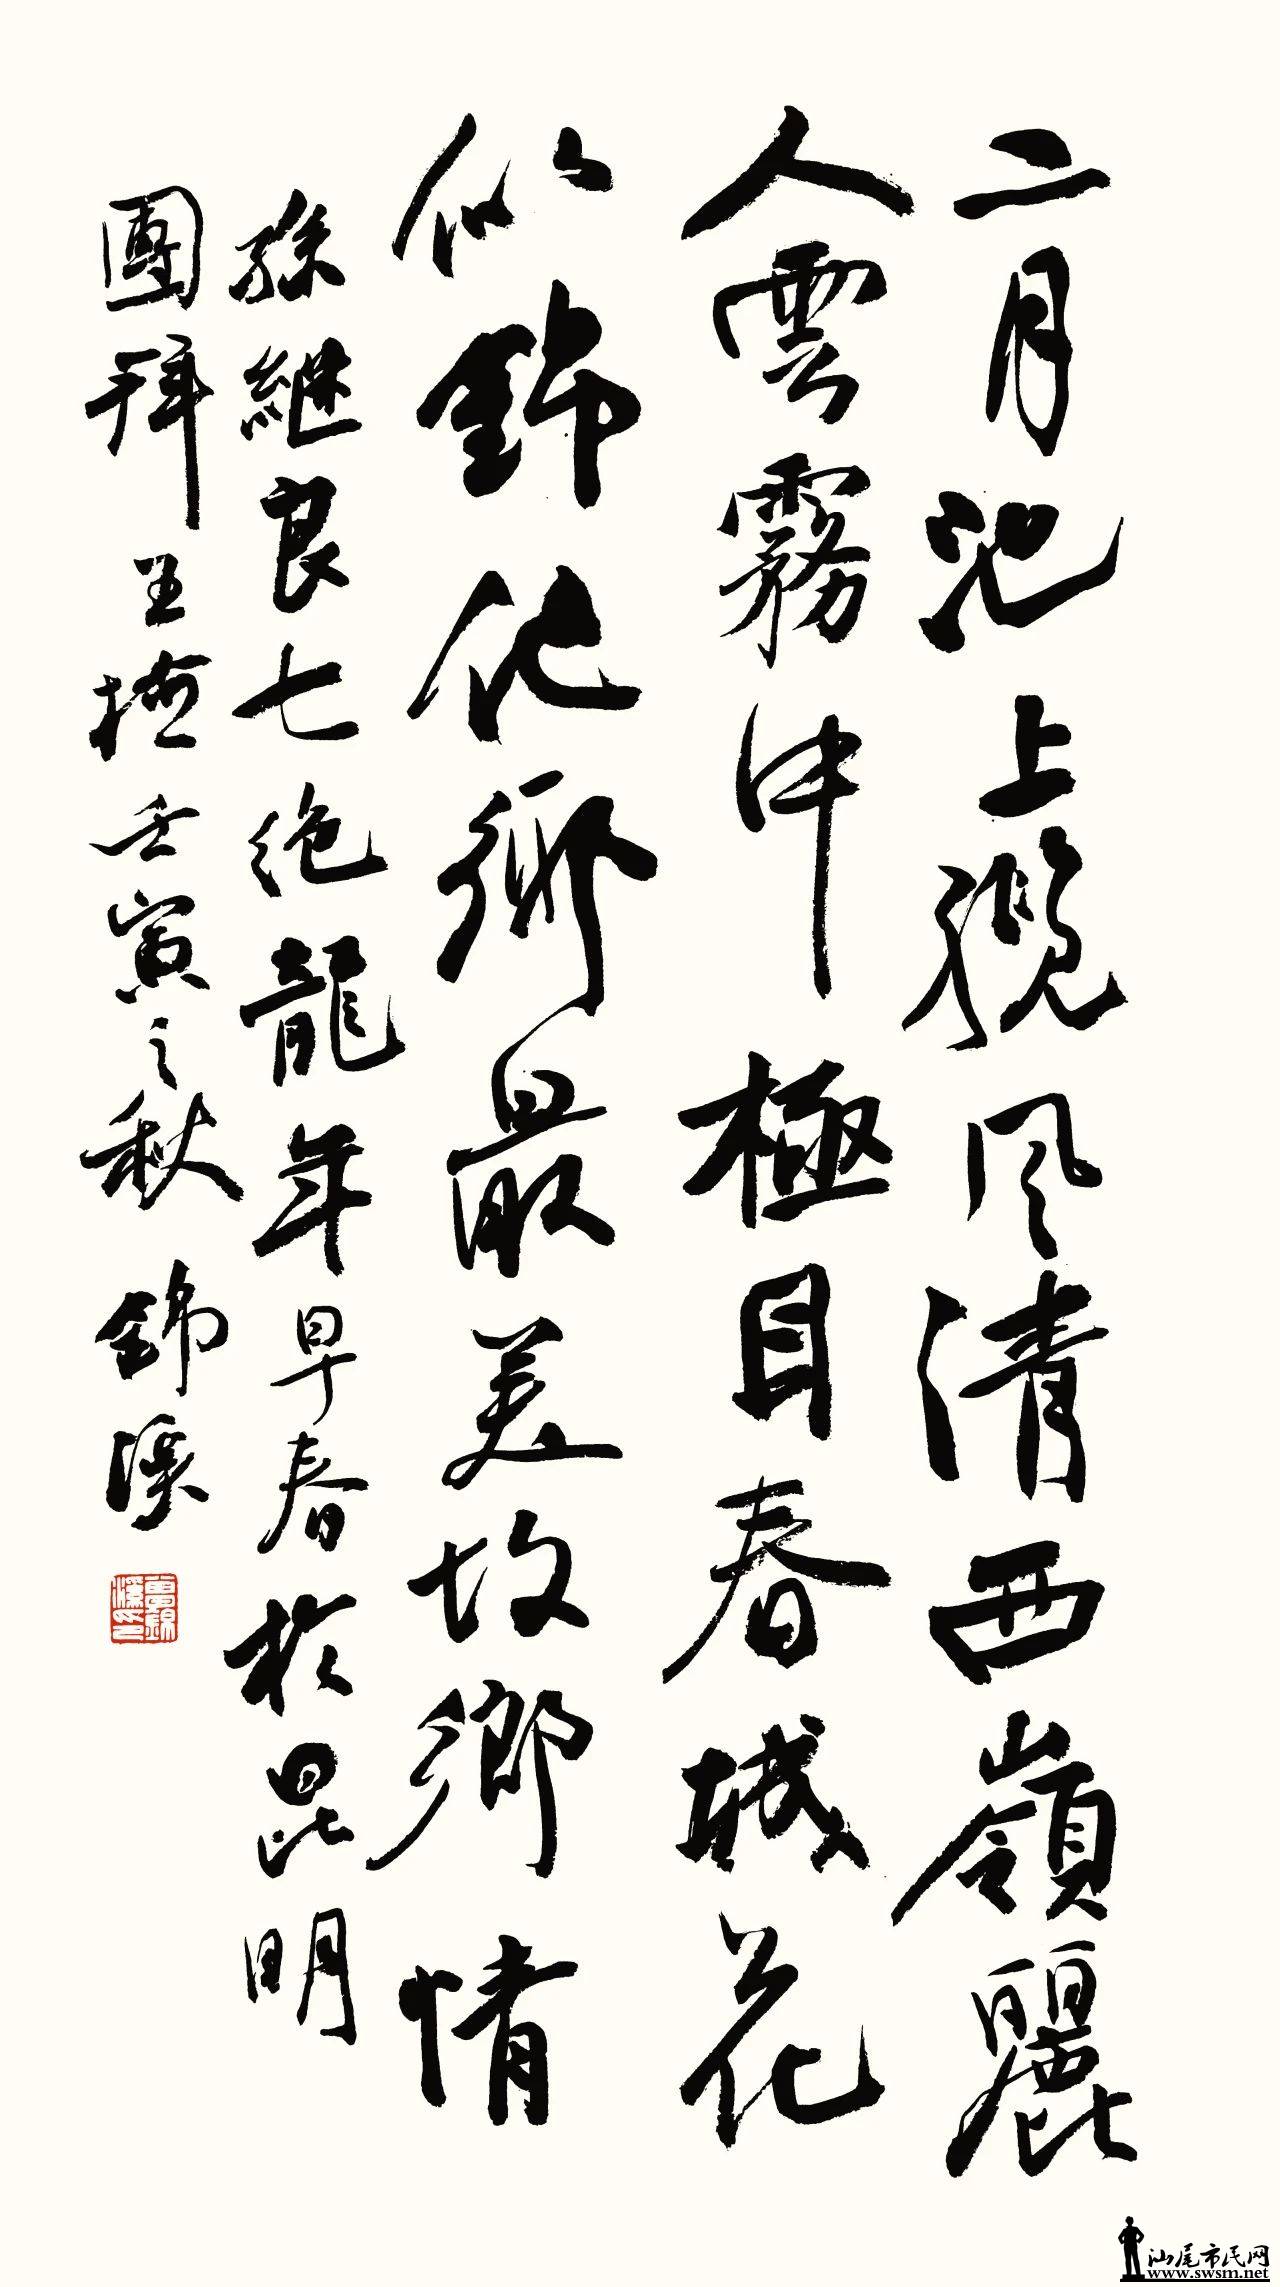 二月池上攬风清西嶺麗
人雲霧中極目春城花
似錦化鄉最美故鄉情
孫継良七绝龍年早春於昆明
團拜 壬寅之秋 錦溪
汕尾市民网
www.swsm.net